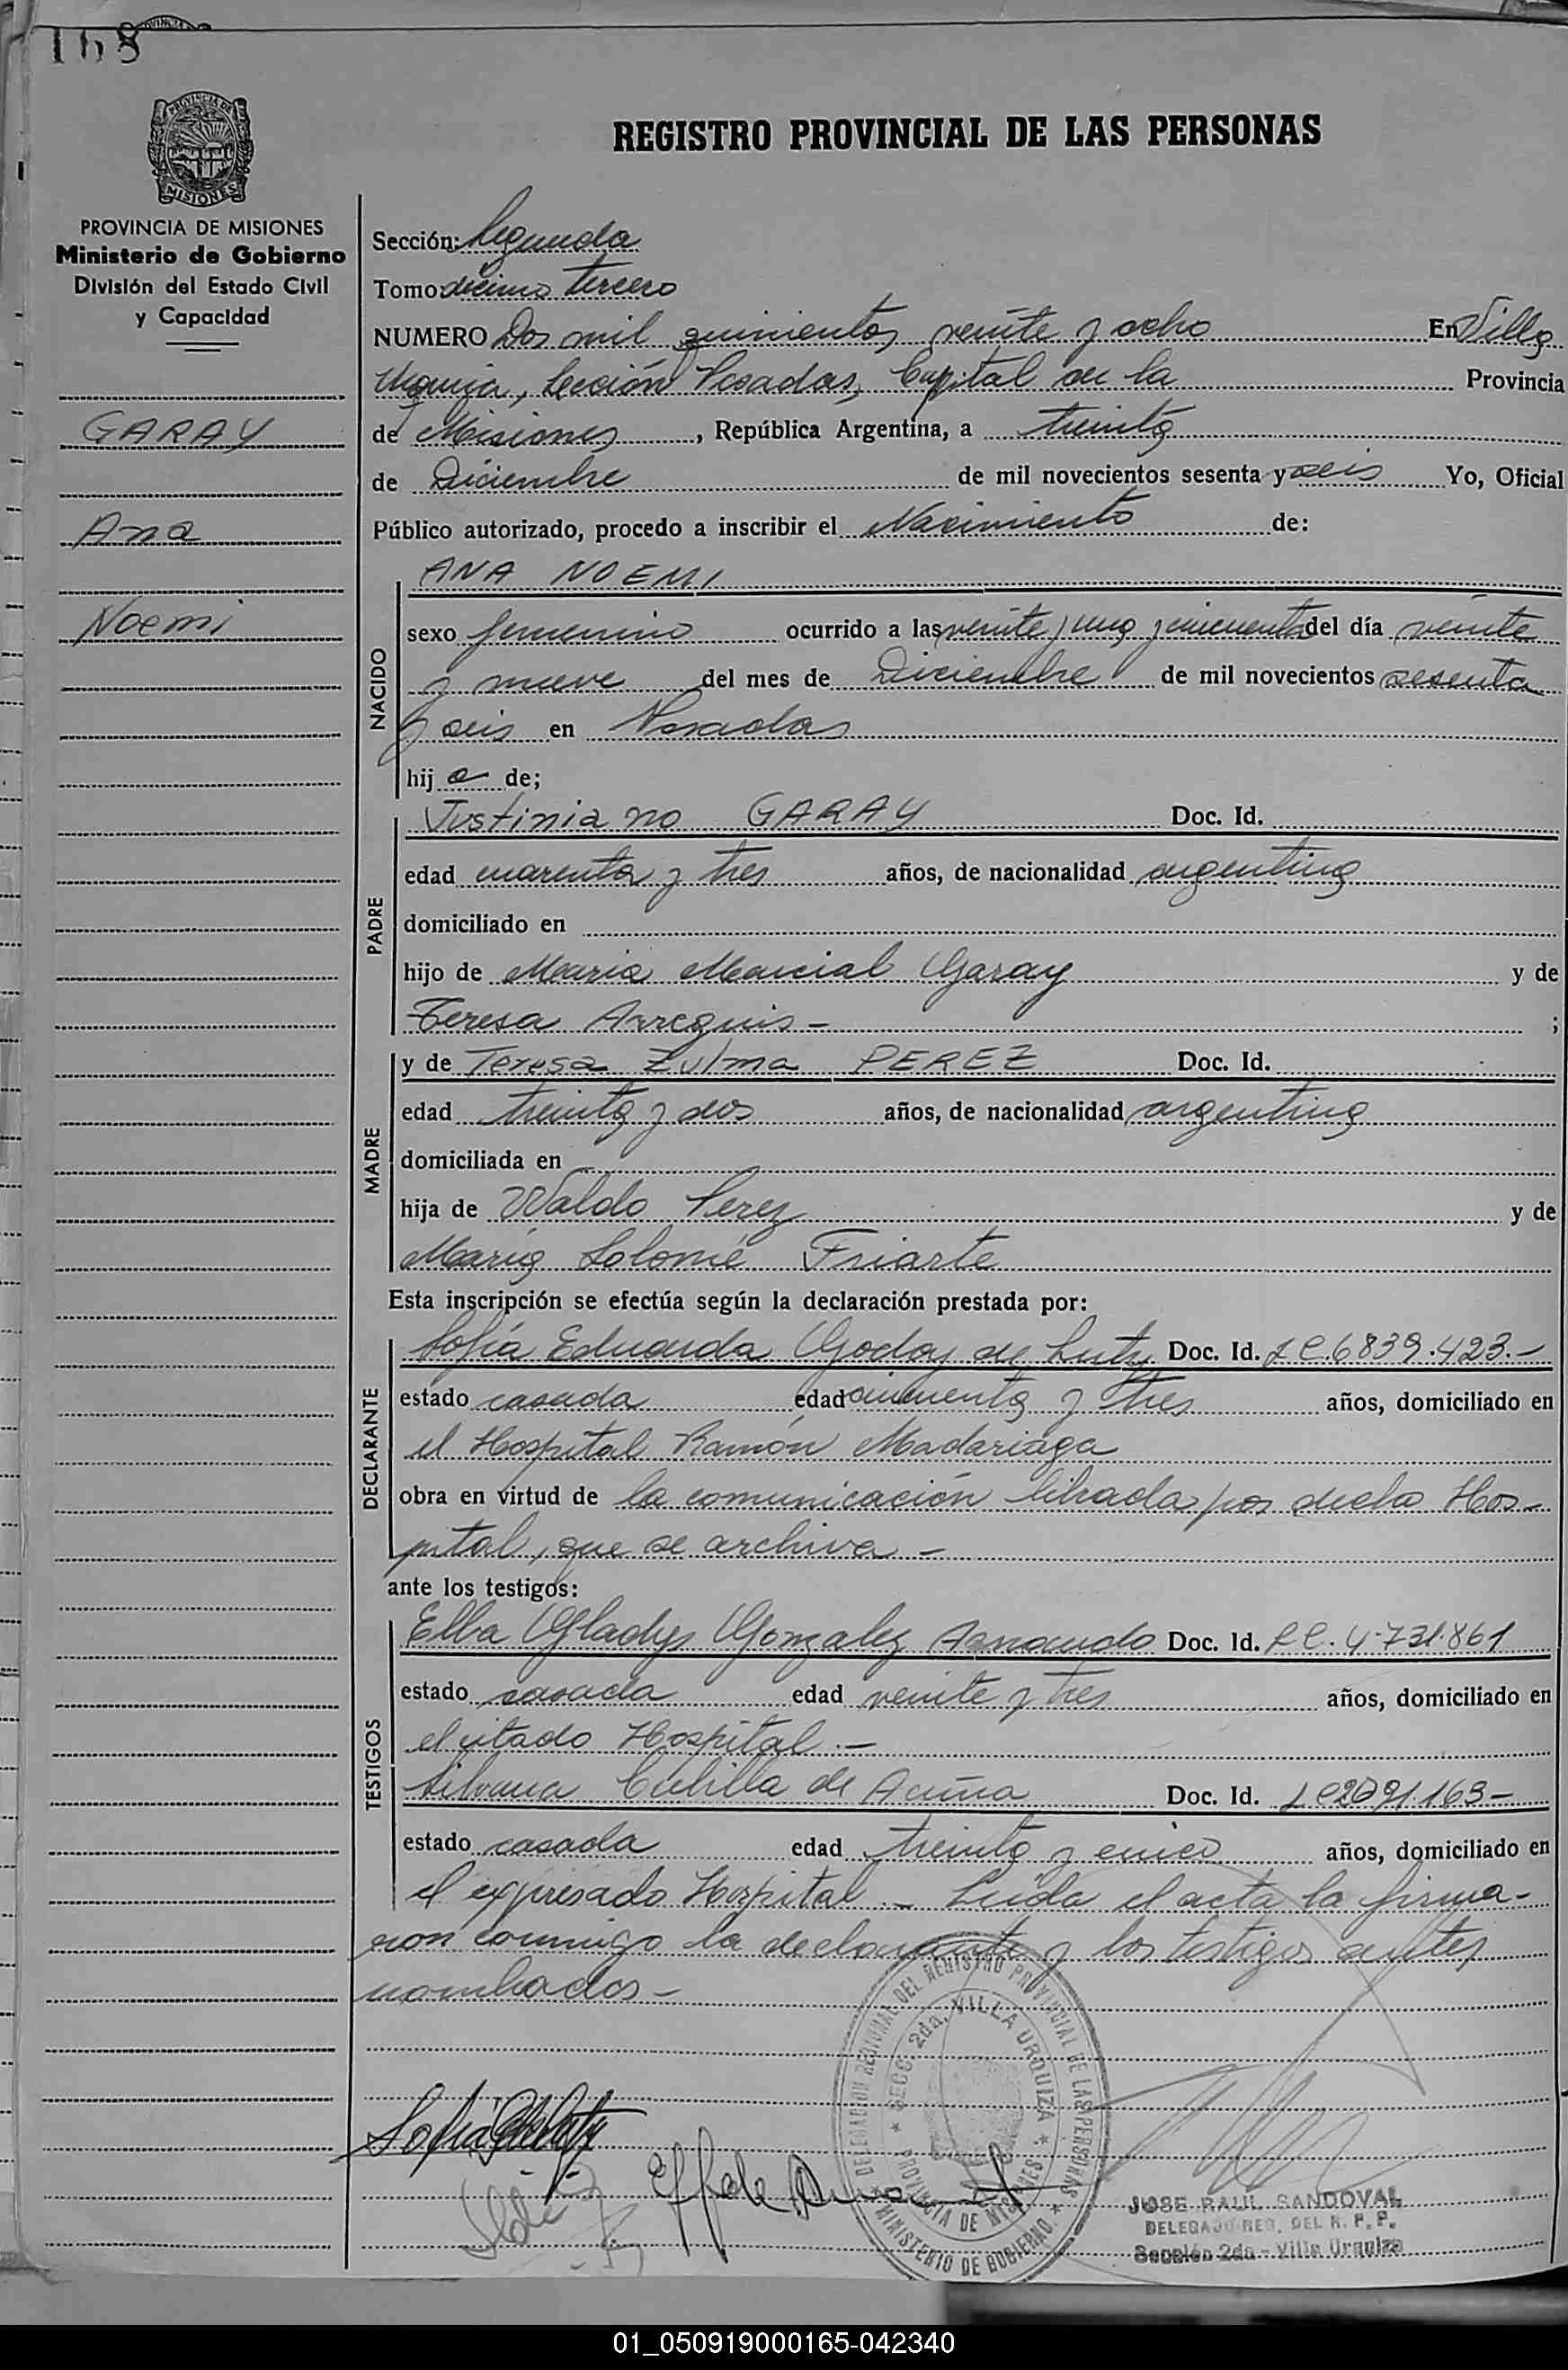 168
REGISTRO PROVINCIAL DE LAS PERSONAS
MISIONES
PROVINCIA DE MISIONES
Ministerio de Gobierno
División del Estado Civil
y Capacidad
GARAY
Ana
Noemi
Sección: Segunda
Tomo décimo tercero
NUMERO Dos mil quinientos veinte y ocho En Villa
Urquiza, Sección Posadas, Capital de la Provincia
de Misiones, República Argentina, a treinta
de Diciembre de mil novecientos sesenta y seis Yo, Oficial
Público autorizado, procedo a inscribir el Nacimiento de:
NACIDO
ANA NOEMI
sexo femenino ocurrido a las veinte y una y cincuenta del día veinte
y nueve del mes de Diciembre de mil novecientos sesenta
y seis en Posadas
hij a de;
PADRE
Justiniano GARAY Doc. Id.
edad cuarenta y tres años, de nacionalidad argentina
domiciliado en
hijo de Maria Marcial Garay y de
Teresa Arreguis - ;
MADRE
y de Teresa Zulma PEREZ Doc. Id.
edad treinta y dos años, de nacionalidad argentina
domiciliada en
hija de Waldo Perez y de
Maria Solomé Friarte
Esta inscripción se efectúa según la declaración prestada por:
DECLARANTE
Sofía Eduarda Godoy de Luty Doc. Id. LC.6839.423.-
estado casada edad cincuenta y tres años, domiciliado en
el Hospital Ramón Madariaga
obra en virtud de la comunicación librada por dicho Hos-
pital, que se archiva -
ante los testigos:
TESTIGOS
Elba Gladys Gonzalez Doc. Id. LC. 4.731.861
estado casada edad veinte y tres años, domiciliado en
el citado Hospital.-
Silvana de Acuña Doc. Id. LC2091.163-
estado casada edad treinta y cinco años, domiciliado en
el expresado Hospital - Leida el acta la firma-
ron conmigo la declarante y los testigos antes
nombrados -
DELEGACION REGIONAL DEL REGISTRO PROVINCIAL DE LAS PERSONAS
SECC. 2da. VILLA URQUIZA
PROVINCIA DE MISIONES
MINISTERIO DE GOBIERNO
JOSE RAUL SANDOVAL
DELEGADO REG. DEL R. P. P.
Sección 2da - Villa Urquiza
01_050919000165-042340